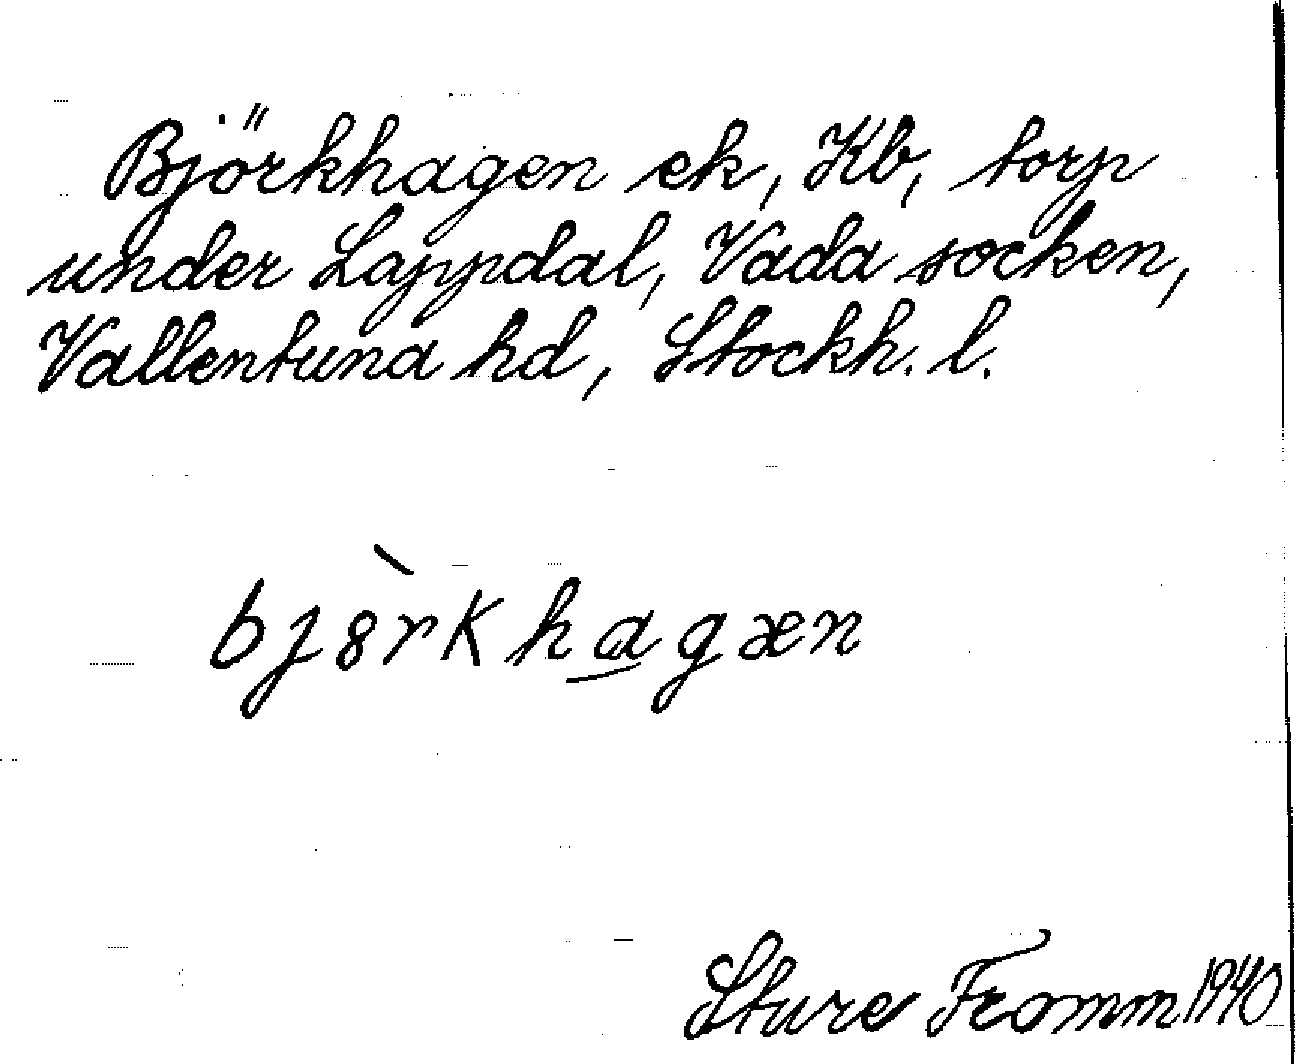 Björkhagen ek, Kb, torp
under Lappdal, Vada socken,
Vallentuna hd, Stockh. l.
bjö̀rkhagæn
Sture Fromm 1940